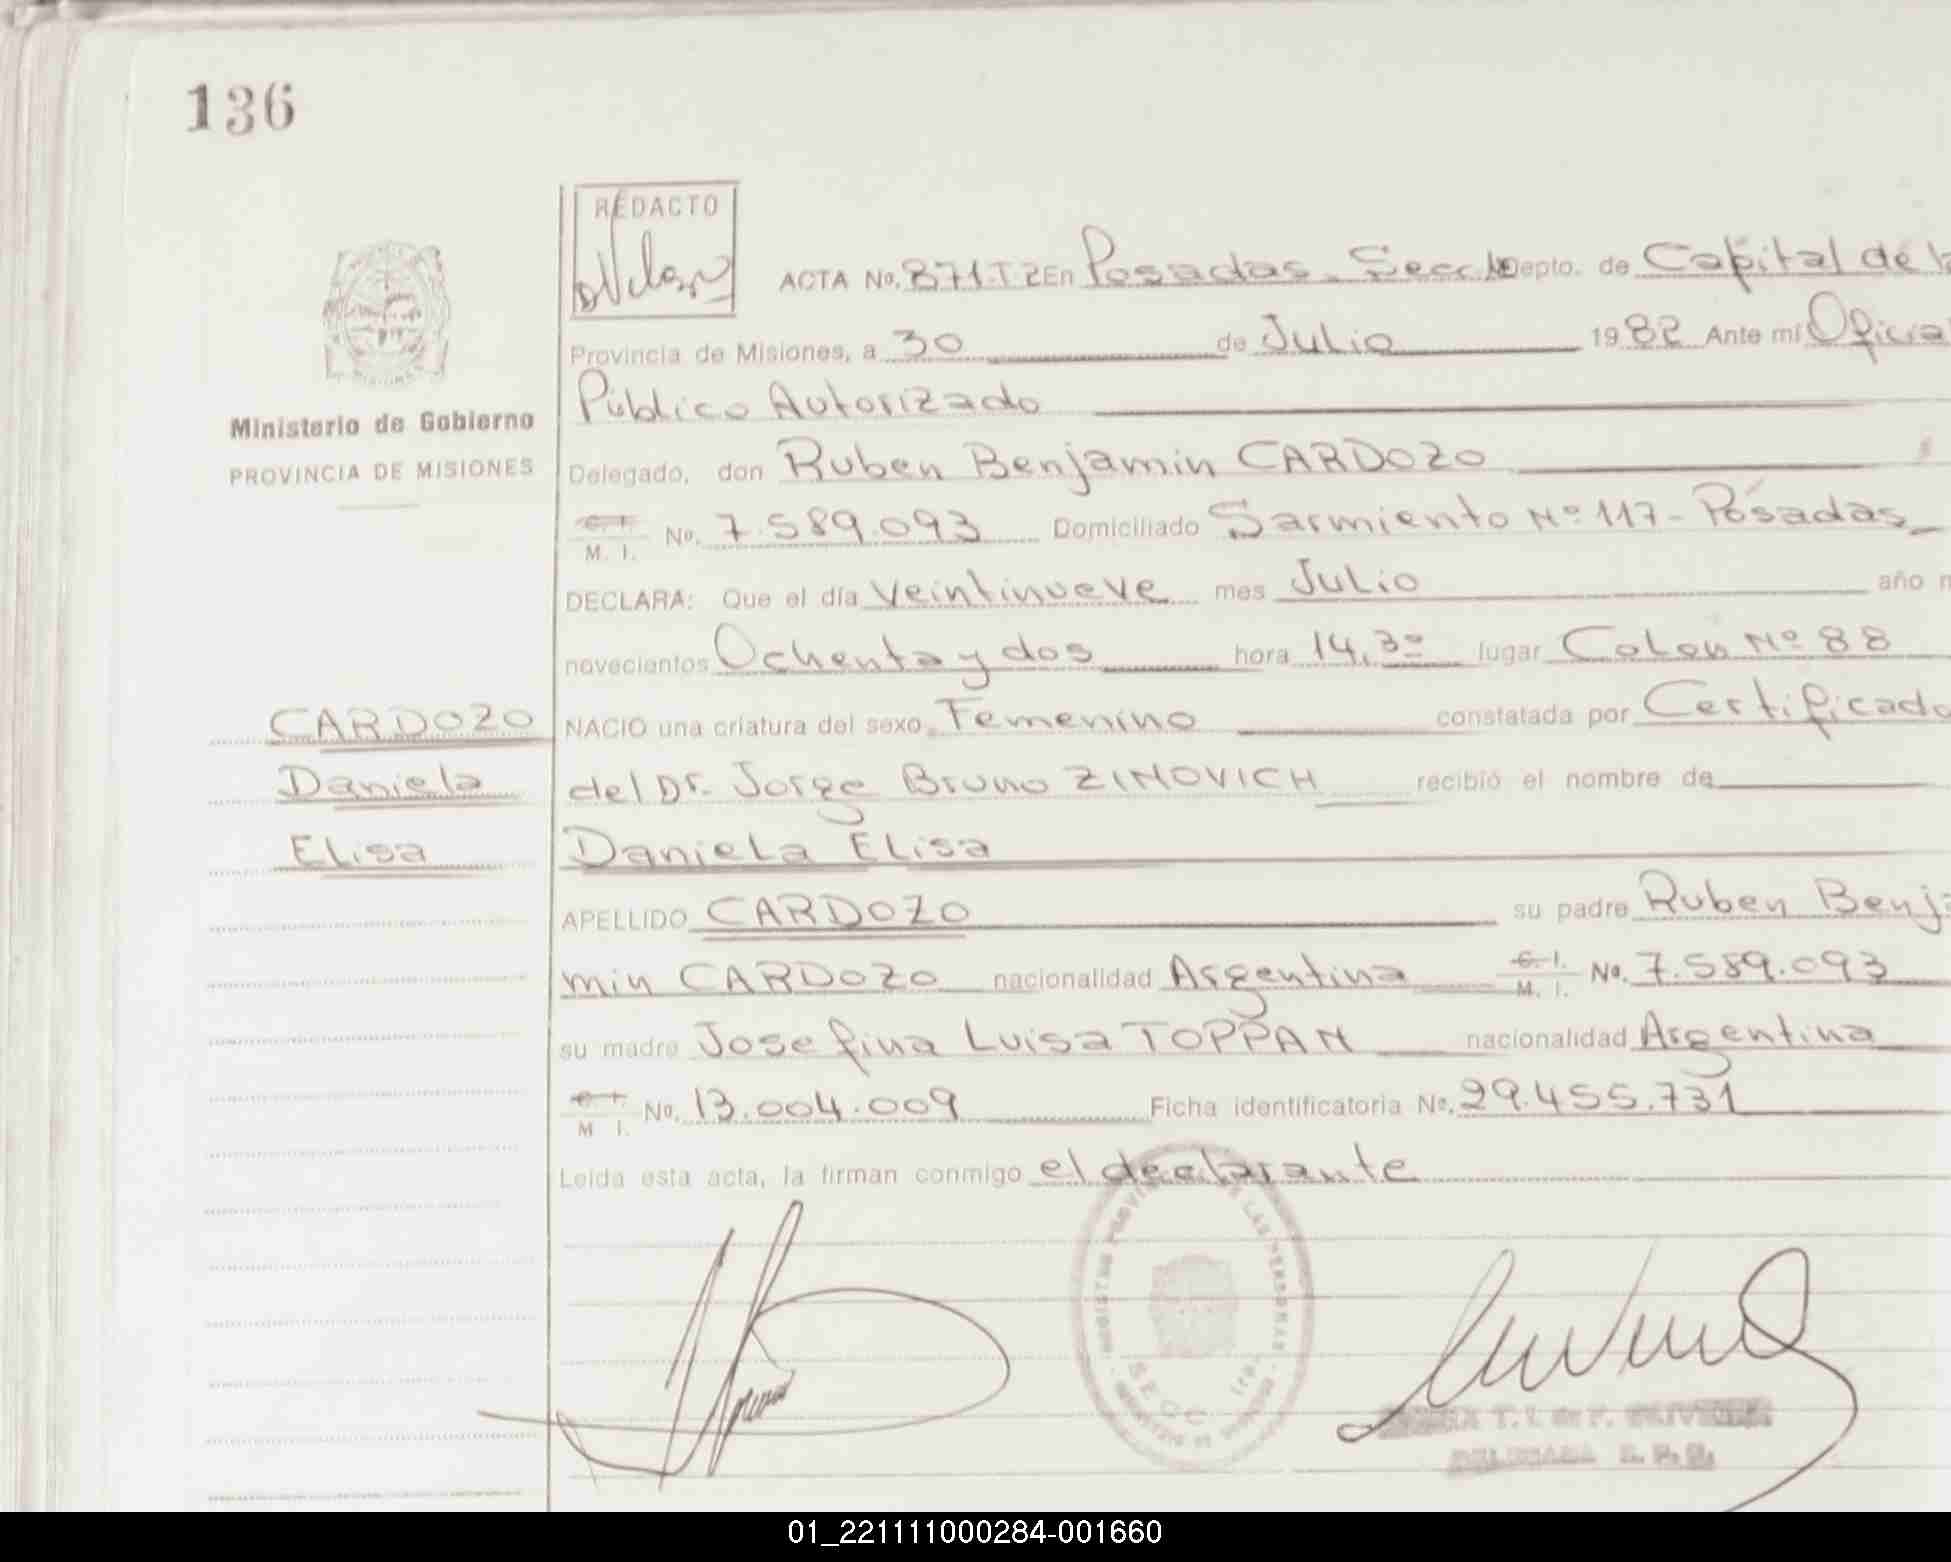 136
REDACTO
ACTA No. 871.T2 En Posadas - Secc. Depto. de Capital de la
Provincia de Misiones, a 30 de Julio 1982 Ante mí Oficial
Público Autorizado
Ministerio de Gobierno
PROVINCIA DE MISIONES
Delegado, don Ruben Benjamin CARDOZO
C. I. M. I. No. 7.589.093 Domiciliado Sarmiento Nº 117 - Posadas
DECLARA: Que el día Veintinueve mes Julio año
novecientos Ochenta y dos hora 14,30 lugar Colon Nº 88
CARDOZO
Daniela
Elisa
NACIO una criatura del sexo Femenino constatada por Certificado
del Dr. Jorge Bruno ZINOVICH recibió el nombre de
Daniela Elisa
APELLIDO CARDOZO su padre Ruben Benja
min CARDOZO nacionalidad Argentina C. I. M. I. No. 7.589.093
su madre Josefina Luisa TOPPAN nacionalidad Argentina
C. I. M I. No. 13.004.009 Ficha identificatoria No. 29.455.731
Leída esta acta, la firman conmigo el declarante
01_221111000284-001660